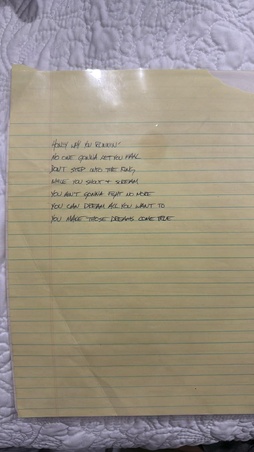 HONEY WHY YOU RUNNIN'
NO ONE GONNA LET YOU FALL
DON'T STEP INTO THE FIRE,
WHILE YOU SHOUT & SCREAM
YOU AIN'T GONNA FIGHT NO MORE
YOU CAN DREAM ALL YOU WANT TO
YOU MAKE THOSE DREAMS COME TRUE